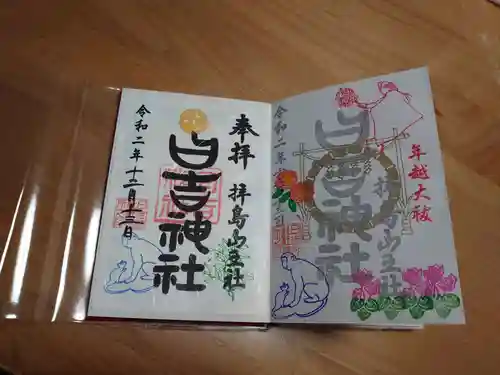 奉拝
拝島山王社
日吉神社
令和二年十二月十三日
年越大祓
拝島山王社
日吉神社
令和二年